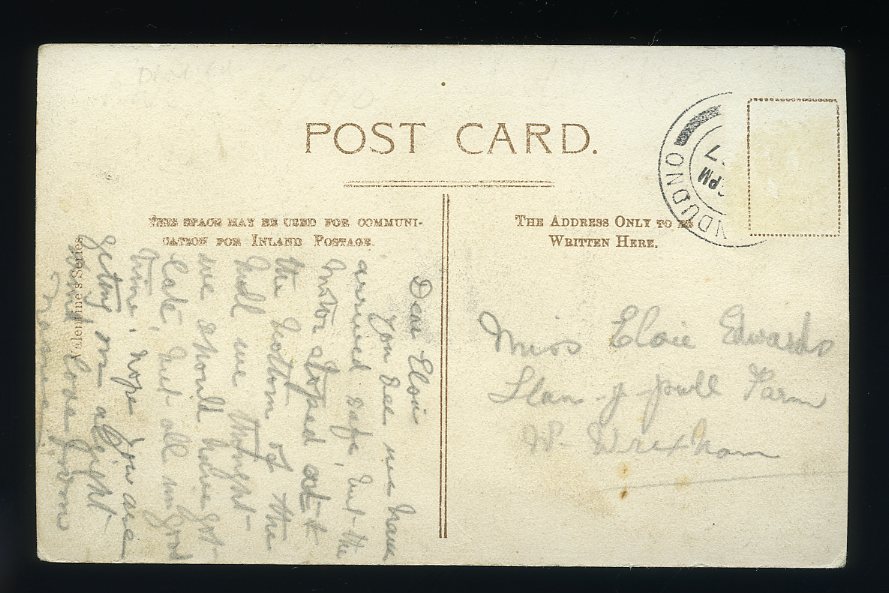 POST CARD.
THIS SPACE MAY BE USED FOR COMMUNI-
CATION FOR INLAND POSTAGE.
THE ADDRESS ONLY TO BE
WRITTEN HERE.
NDUDNO
PM
7
Valentine's Series
Dear Elsie
You see we have
arrived safe, but the
motor stoped at
the bottom of the
hill we thought
we should have got
late, but all in good
time, hope you are
geting on alright
love from
Miss Elsie Edwards
Llan-y-pwll Farm
Nr. Wrexham